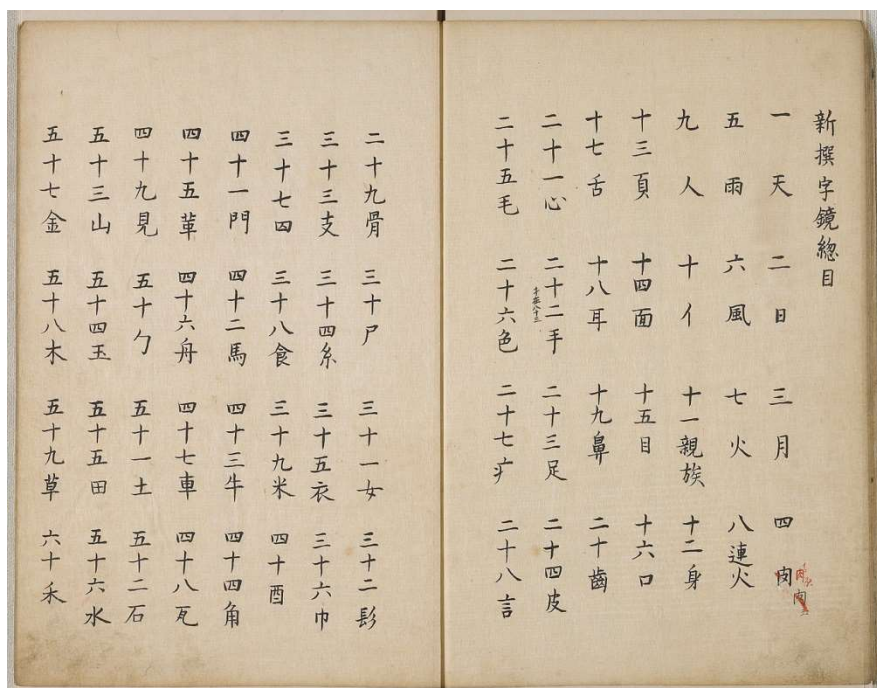 新撰字鏡總目
一天 二日 三月 四肉
五雨 六風 七火 八連火
九人 十亻 十一親族 十二身
十三頁 十四面 十五目 十六口
十七舌 十八耳 十九鼻 二十齒
二十一心 二十二手 二十三足 二十四皮
二十五毛 二十六色 二十七疒 二十八言
二十九骨 三十尸 三十一女 三十二髟
三十三支 三十四糸 三十五衣 三十六巾
三十七囚 三十八食 三十九米 四十酉
四十一門 四十二馬 四十三牛 四十四角
四十五革 四十六舟 四十七車 四十八瓦
四十九見 五十勹 五十一土 五十二石
五十三山 五十四玉 五十五田 五十六水
五十七金 五十八木 五十九草 六十禾